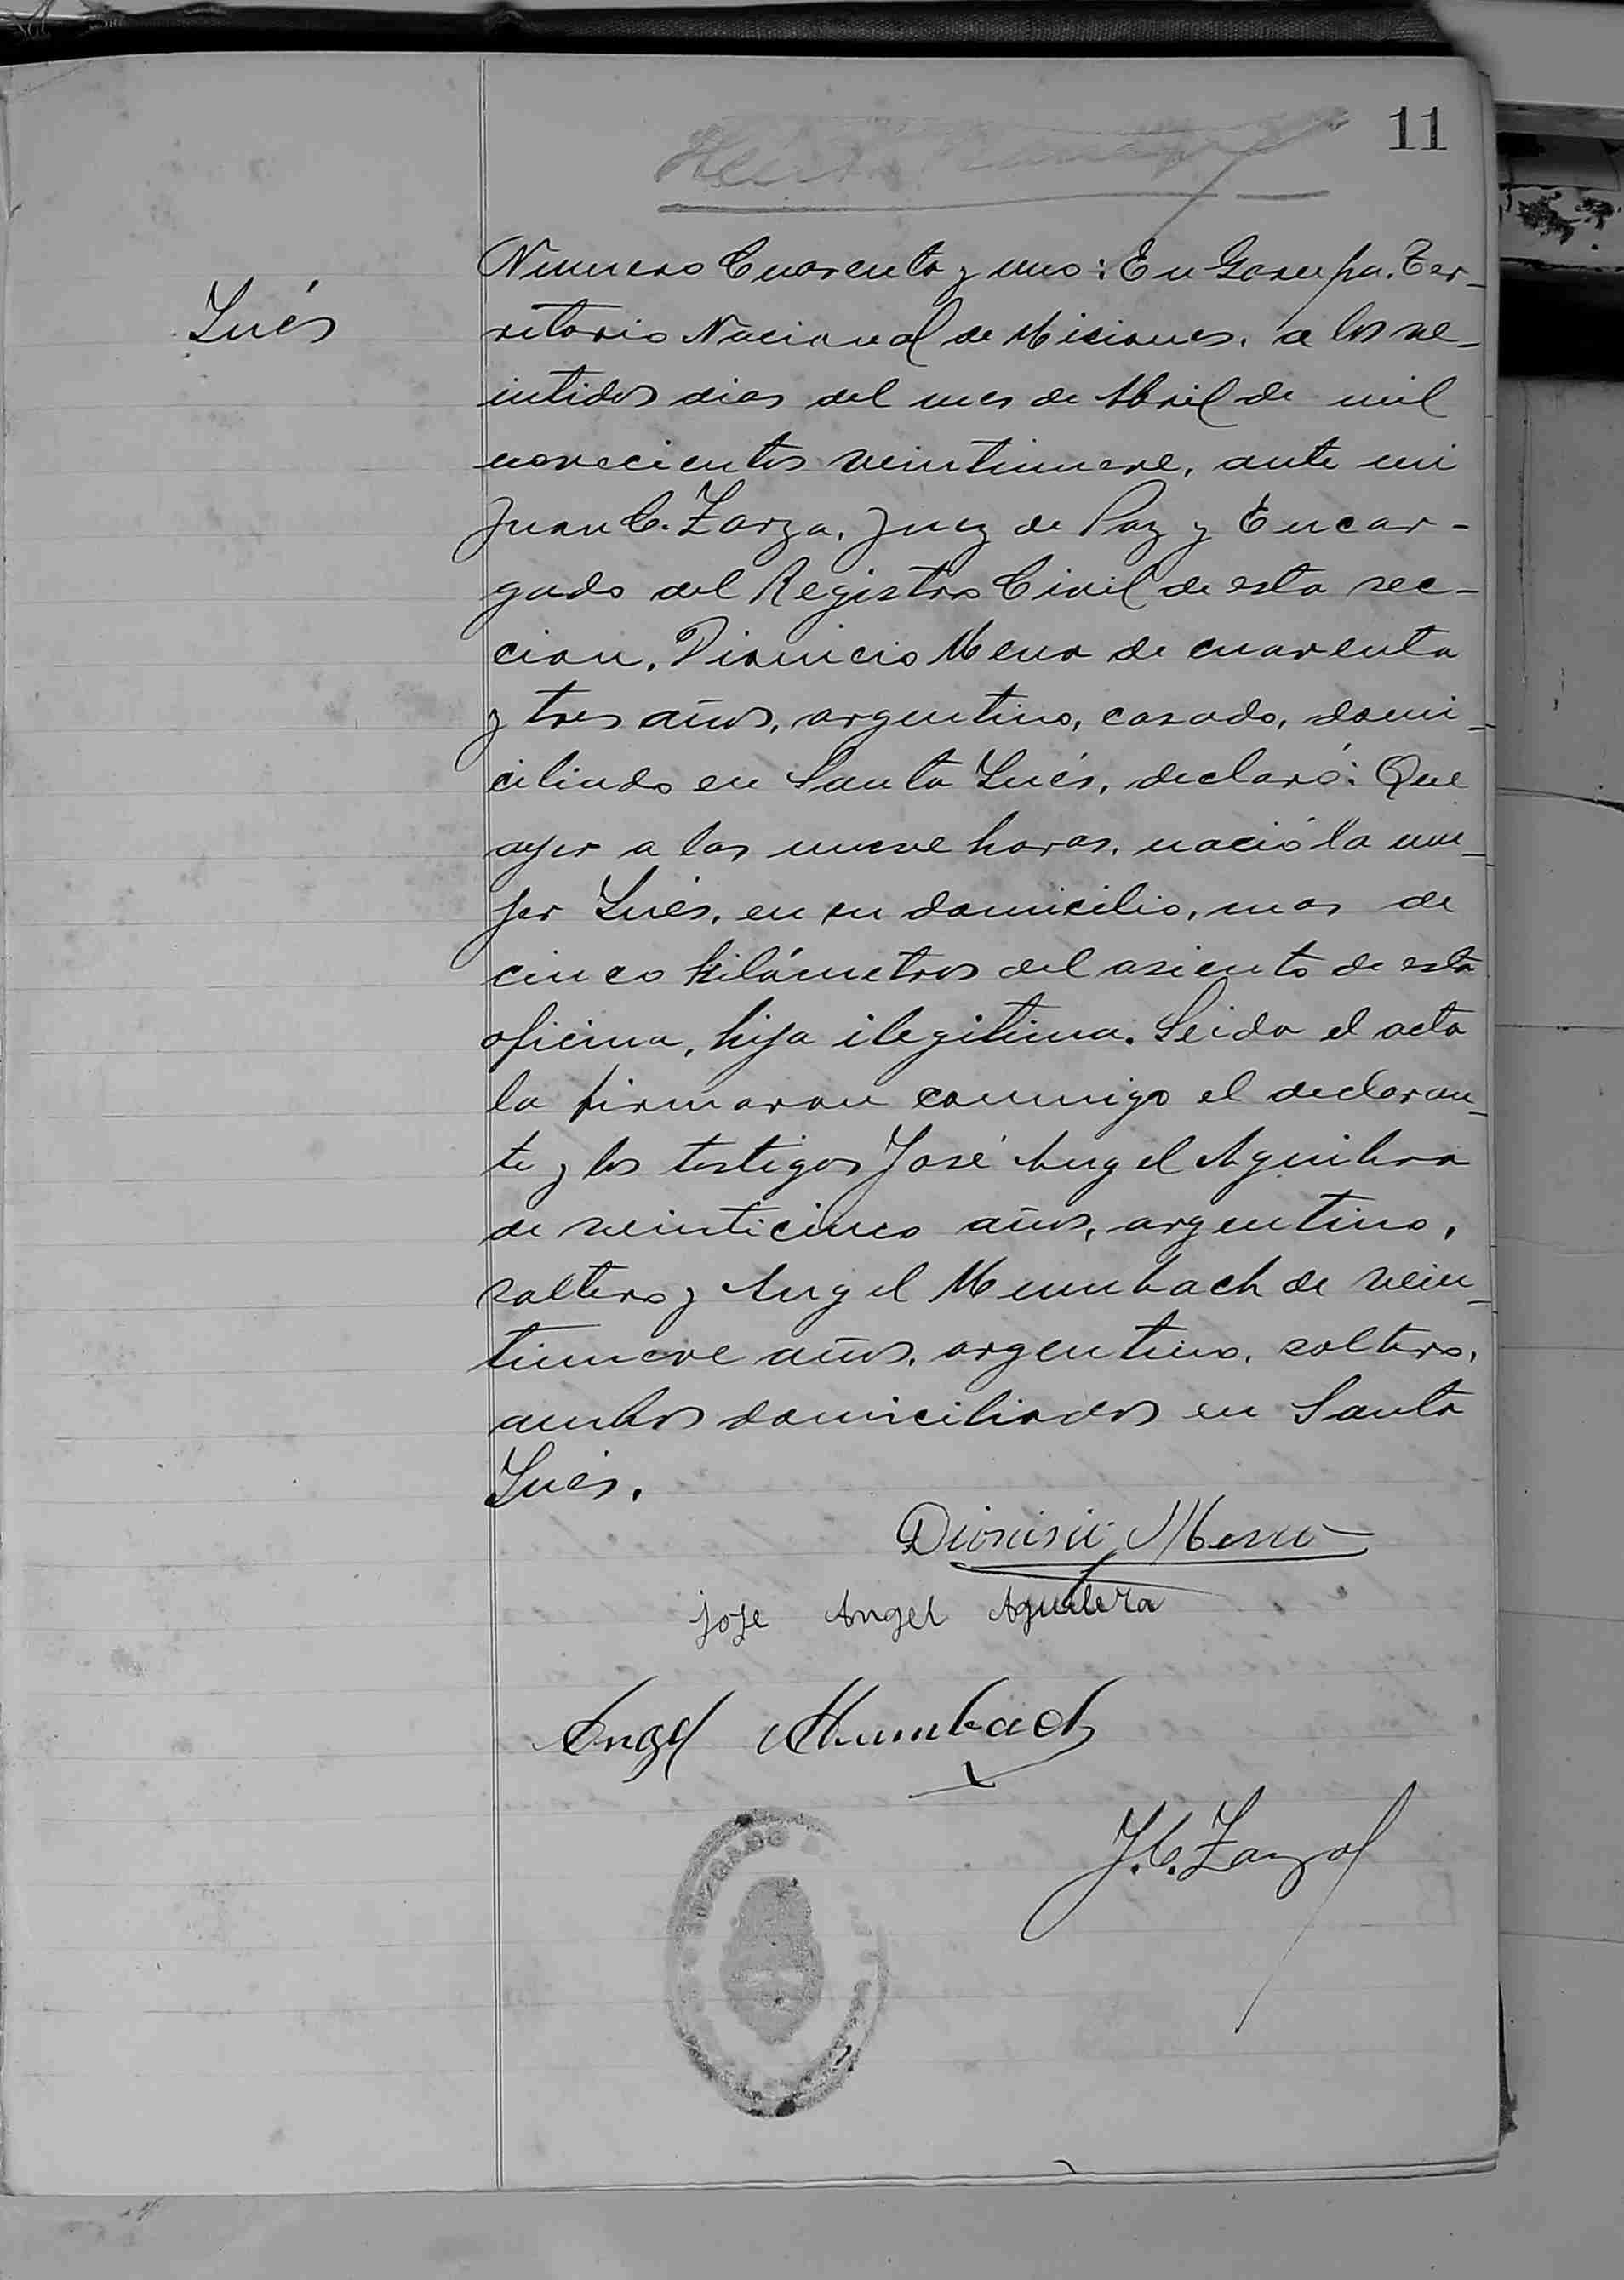 11
Inés
Numero Cuarenta y uno: En Garupa. Ter-
ritorio Nacional de Misiones. a los ve-
intidos dias del mes de Abril de mil
novecientos veintinueve, ante mi
Juan C. Zarza, Juez de Paz y Encar-
gado del Registro Civil de esta sec-
cion. Dionicio Mena de cuarenta
y tres años, argentino, casado, domi-
ciliado en Santa Inés, declaró: Que
ayer a las nueve horas, nació la mu-
jer Inés, en su domicilio, mas de
cinco kilómetros del asiento de esta
oficina, hija ilegitima. Leida el acta
la firmaron conmigo el declaran-
te y los testigos José Angel Aguilera
de veinticinco años, argentino,
soltero y Angel Mumbach de vein-
tinueve años, argentino, soltero,
ambos domiciliados en Santa
Inés.
Dionisio Mena
jose Angel Aguilera
Angel Mumbach
J. C. Zarza
JUZGADO